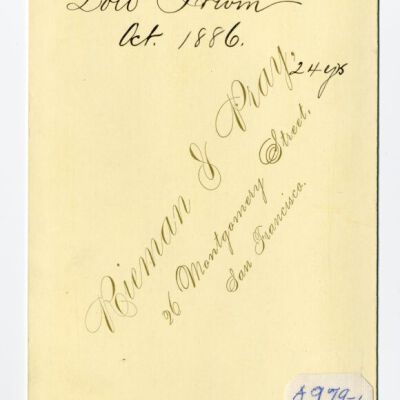 Oct. 1886.
24 yrs
Rieman & Pray,
26 Montgomery Street,
San Francisco.
A979-